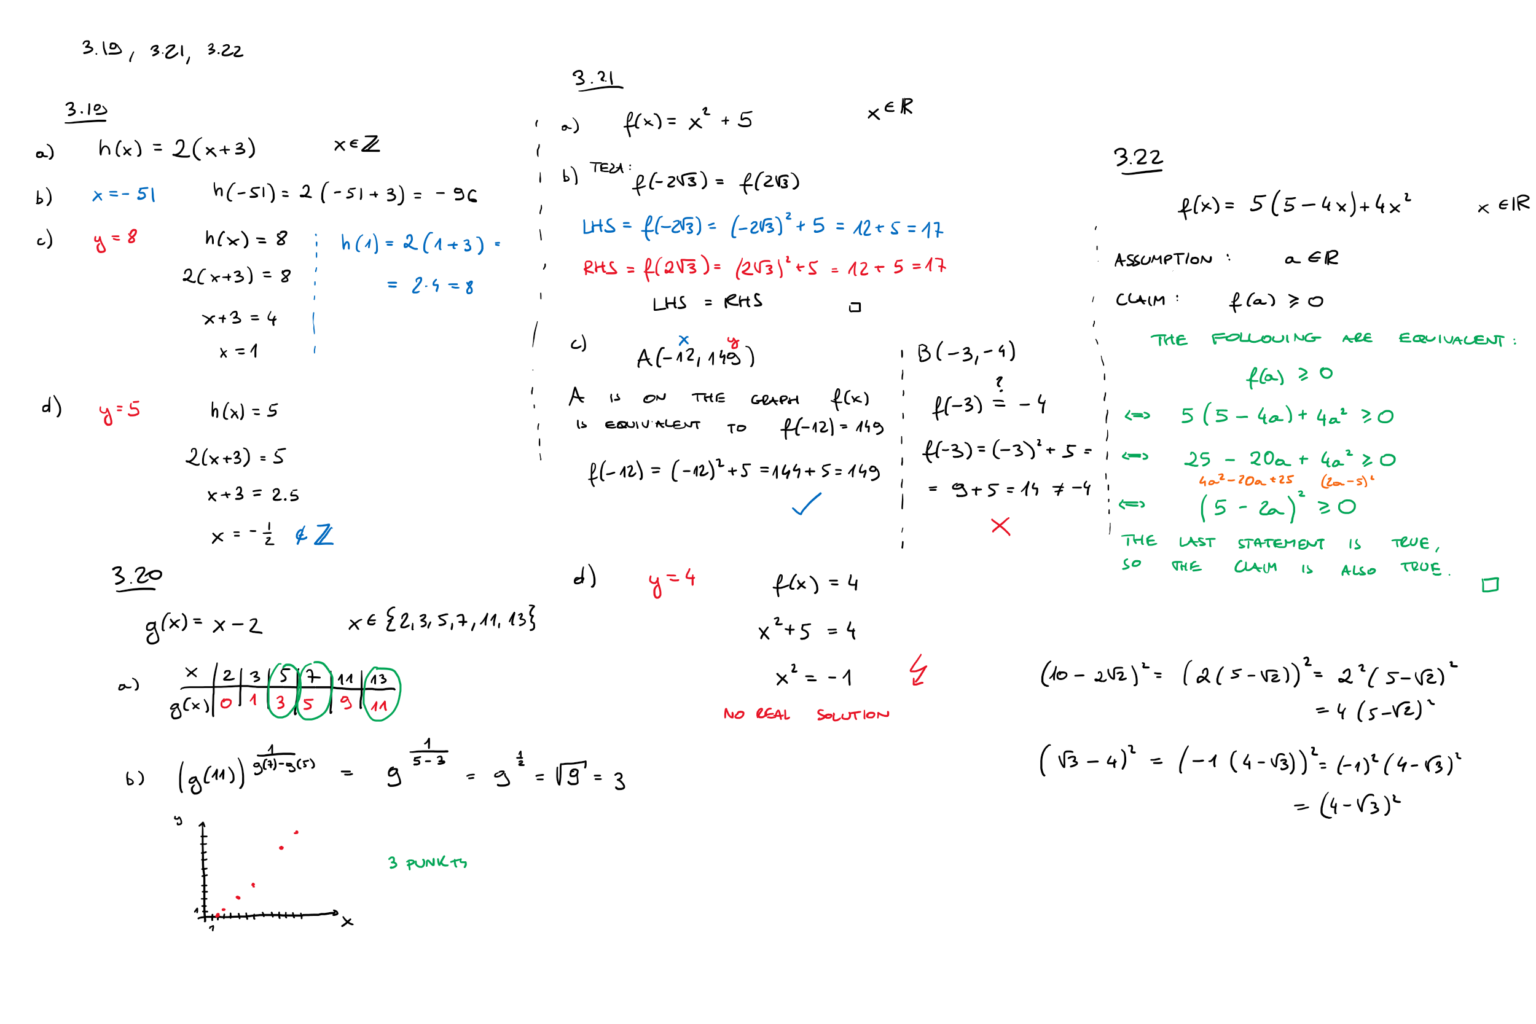 3.19, 3.21, 3.22
3.19
a) h(x) = 2(x+3) x∈ℤ
b) x=-51 h(-51) = 2(-51+3) = -96
c) y=8 h(x) = 8
2(x+3) = 8
x+3 = 4
x = 1
h(1) = 2(1+3) =
= 2·4 = 8
d) y=5 h(x) = 5
2(x+3) = 5
x+3 = 2.5
x = -1/2 ∉ ℤ
3.20
g(x) = x-2 x∈{2,3,5,7,11,13}
a) x | 2 | 3 | 5 | 7 | 11 | 13
g(x) | 0 | 1 | 3 | 5 | 9 | 11
b) (g(11))^(1/(g(7)-g(5))) = 9^(1/(5-3)) = 9^(1/2) = √9 = 3
y
1
1
x
3 PUNKTY
3.21
a) f(x) = x² + 5 x∈ℝ
b) TEZA: f(-2√3) = f(2√3)
LHS = f(-2√3) = (-2√3)² + 5 = 12+5 = 17
RHS = f(2√3) = (2√3)² + 5 = 12+5 = 17
LHS = RHS □
c) x y
A(-12, 149)
A IS ON THE GRAPH f(x)
IS EQUIVALENT TO f(-12) = 149
f(-12) = (-12)² + 5 = 144+5 = 149
✓
B(-3,-4)
?
f(-3) = -4
f(-3) = (-3)² + 5 =
= 9+5 = 14 ≠ -4
✗
d) y=4 f(x) = 4
x²+5 = 4
x² = -1 ↯
NO REAL SOLUTION
3.22
f(x) = 5(5-4x)+4x² x∈ℝ
ASSUMPTION: a∈ℝ
CLAIM: f(a) ⩾ 0
THE FOLLOWING ARE EQUIVALENT:
f(a) ⩾ 0
⇔ 5(5-4a)+4a² ⩾ 0
⇔ 25 - 20a + 4a² ⩾ 0
4a²-20a+25 (2a-5)²
⇔ (5-2a)² ⩾ 0
THE LAST STATEMENT IS TRUE,
SO THE CLAIM IS ALSO TRUE. □
(10-2√2)² = (2(5-√2))² = 2²(5-√2)²
= 4(5-√2)²
(√3-4)² = (-1(4-√3))² = (-1)²(4-√3)²
= (4-√3)²